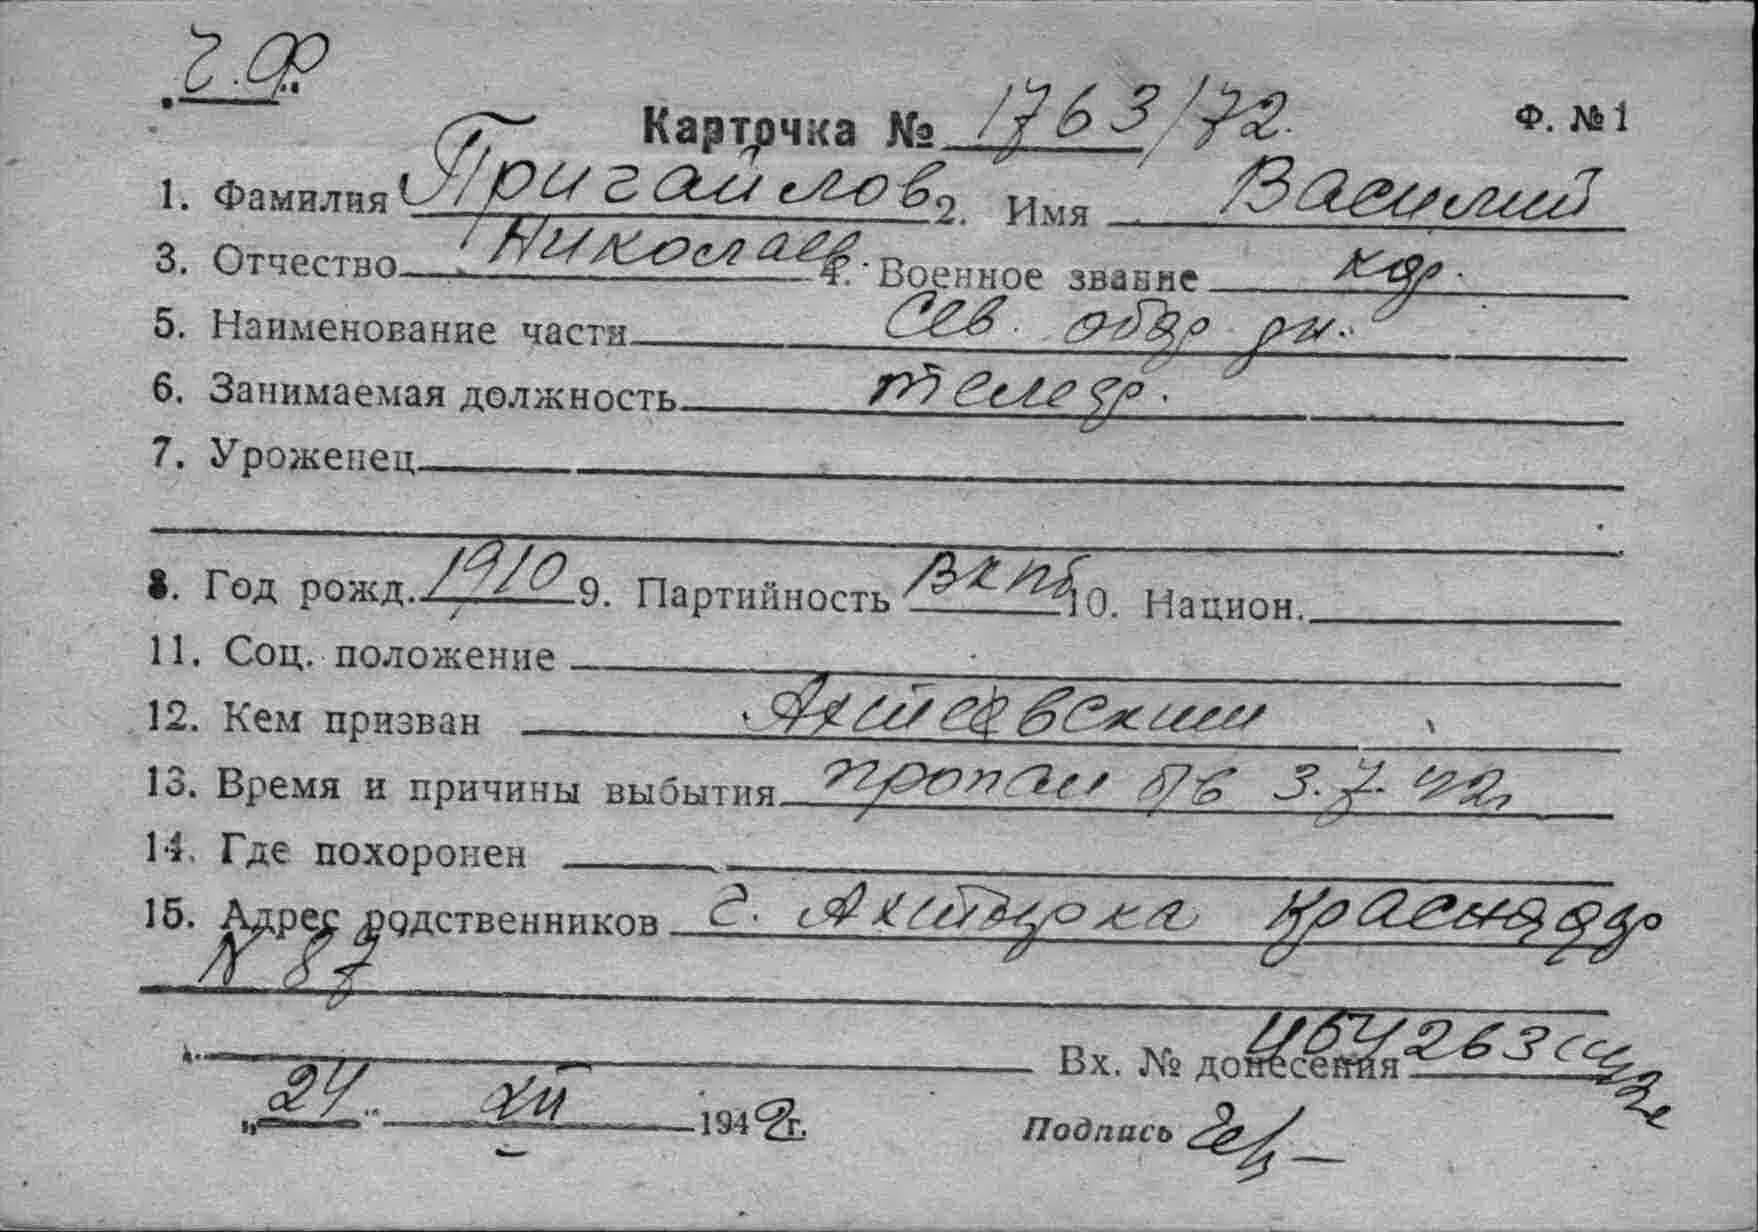 Ч.Ф.
Карточка № 1763/72. Ф. №1
1. Фамилия Пригайлов 2. Имя Василий
3. Отчество Николаев. 4. Военное звание кдр.
5. Наименование части Сев. обдр рн.
6. Занимаемая должность
7. Уроженец
8. Год рожд. 1910 9. Партийность ВКПб 10. Национ.
11. Соц. положение
12. Кем призван
13. Время и причины выбытия пропал б/в 3.7.42г
14. Где похоронен
15. Адрес родственников г. Ахтырка
N 87
Вх. № донесения
„24" XII 1942г.
Подпись